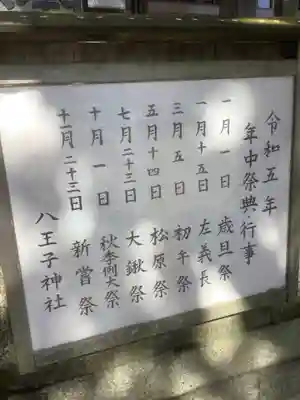 令和五年
年中祭典行事
一月一日 歳旦祭
一月十五日 左義長
三月五日 初午祭
五月十四日 松原祭
七月二十三日 大鍬祭
十月一日 秋季例大祭
十一月二十三日 新嘗祭
八王子神社